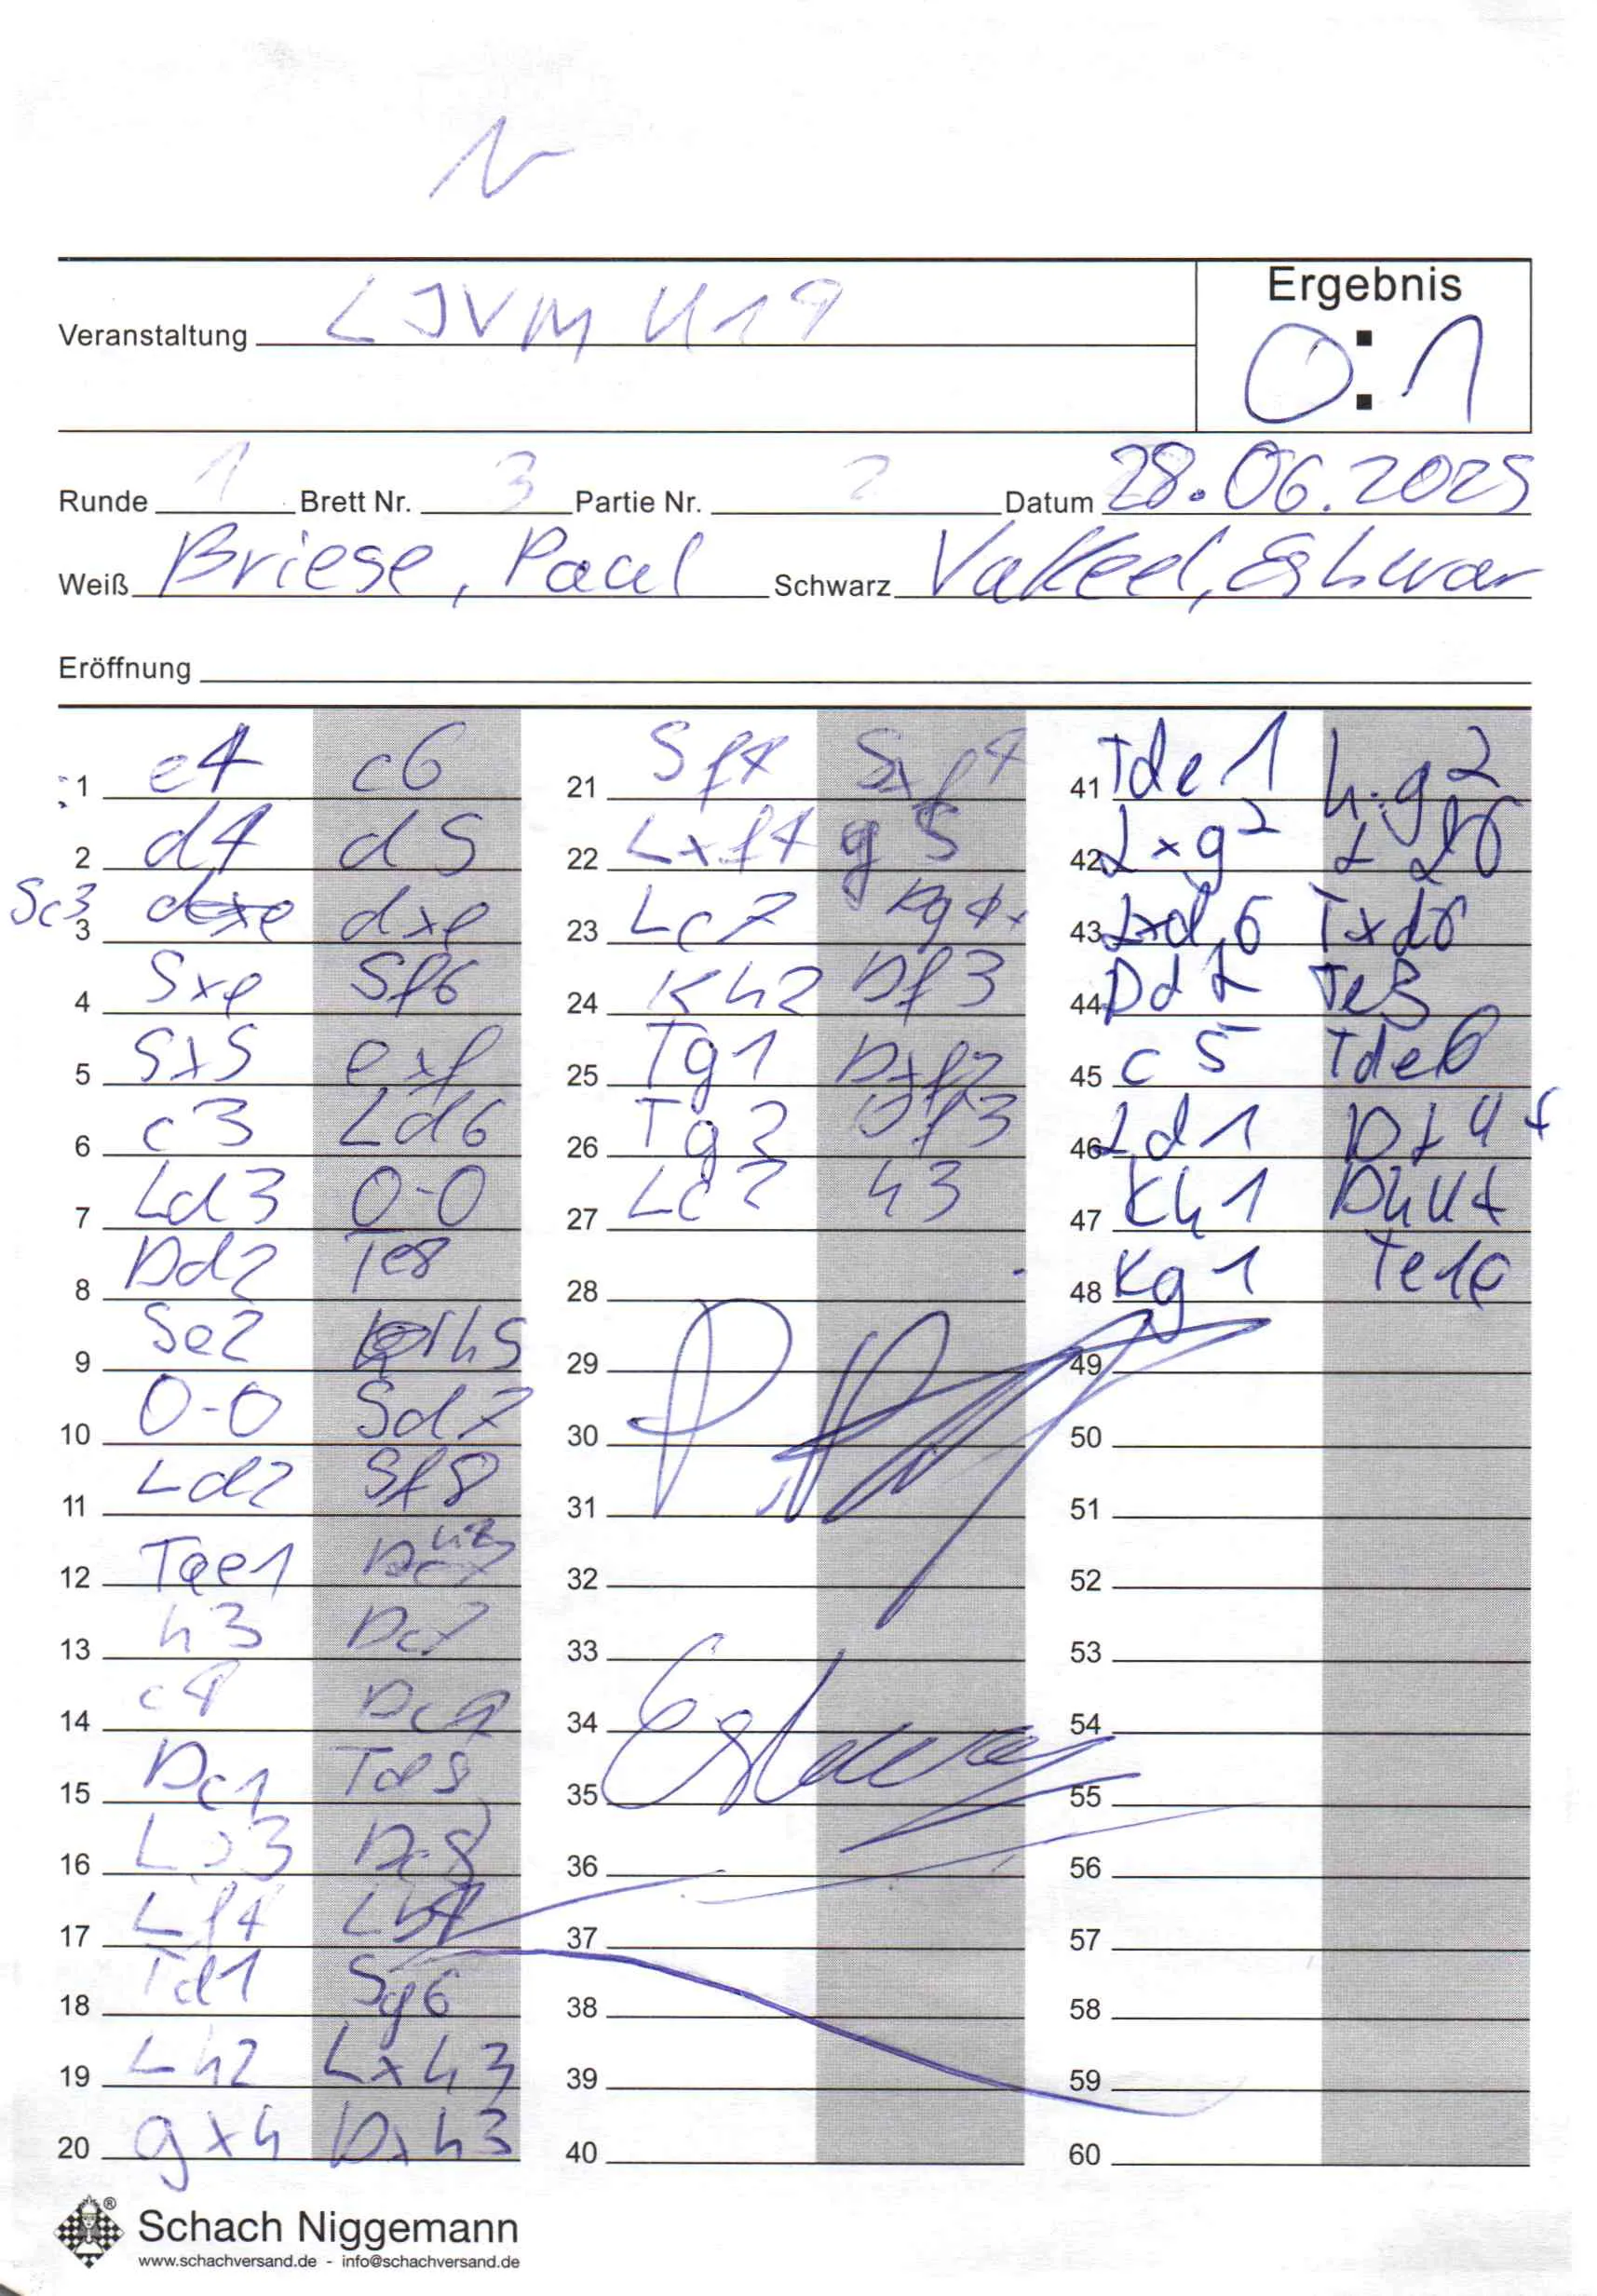 Ergebnis
Veranstaltung LJVM U19
0:1
Runde 1 Brett Nr. 3 Partie Nr. 2 Datum 28.06.2025
Weiß Briese, Paul Schwarz Vakeel, Eshwar
Eröffnung
1 e4 c6
2 d4 d5
Sc3 3 dxe dxe
4 Sxe Sf6
5 Sx5 exf
6 c3 Ld6
7 Ld3 0-0
8 Dd2 Te8
9 Se2 h5
10 0-0 Sd7
11 Ld2 Sf8
12 Tae1
13 h3 Dc7
14 c4
15 Dc1
16 L
17 Lf4
18 Td1 Sg6
19 Lh2 Lxh3
20 gxh Dxh3
21 Sf4 Sxf4
22 Lxf4 g5
23 Lc7 Dg4+
24 Kh2 Df3
25 Tg1 Dxf2
26 Tg2 Df3
27 Lc2 h3
28
29
30
31
32
33
34 Eshwar
35
36
37
38
39
40
41 Tde1 h:g2
42 Lxg2
43 Lxd6 Txd6
44 Dd2 Te3
45 c5 Tde6
46 Ld1 Df4+
47 Kh1 Dh4+
48 Kg1 Te1
49
50
51
52
53
54
55
56
57
58
59
60
Schach Niggemann ®
www.schachversand.de - info@schachversand.de